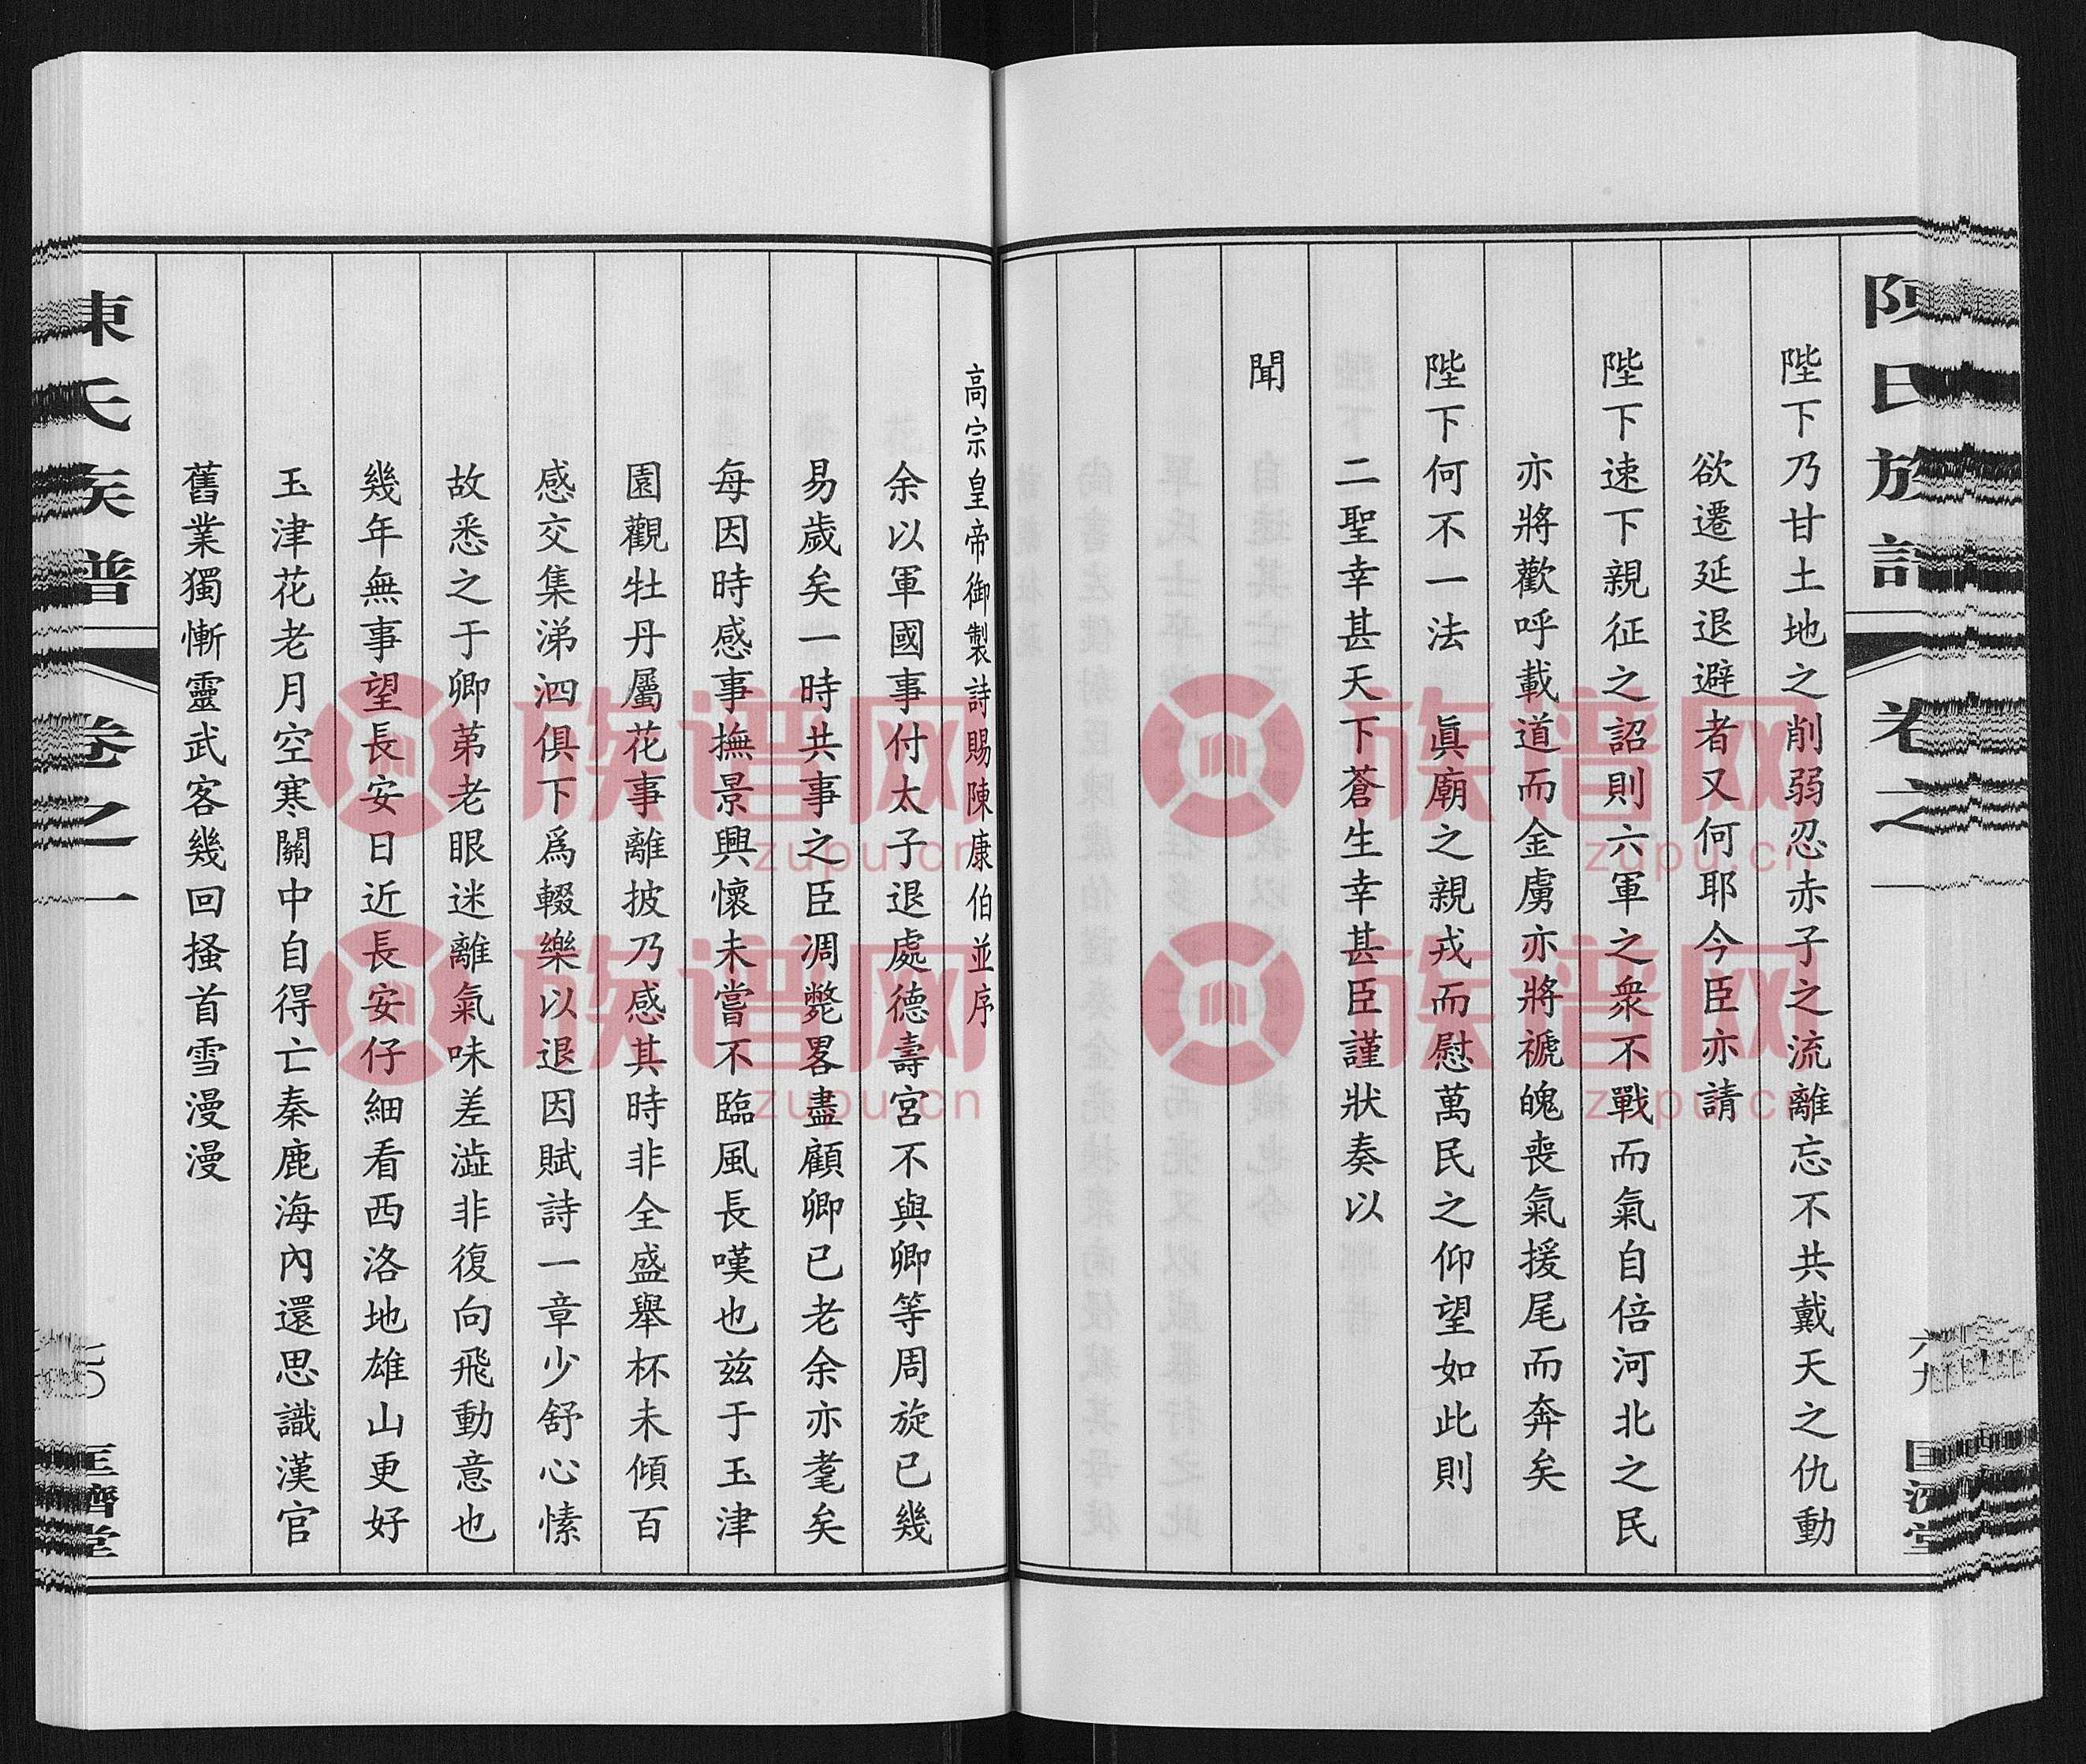 陳氏族譜
卷之一
六九
匡濟堂
陛下乃甘土地之削弱忍赤子之流離忘不共戴天之仇動
欲遷延退避者又何耶今臣亦請
陛下速下親征之詔則六軍之衆不戰而氣自倍河北之民
亦將歡呼載道而金虜亦將褫魄喪氣援尾而奔矣
陛下何不一法　眞廟之親戎而慰萬民之仰望如此則
二聖幸甚天下蒼生幸甚臣謹狀奏以
聞
高宗皇帝御製詩賜陳康伯並序
余以軍國事付太子退處德壽宮不與卿等周旋已幾
易歲矣一時共事之臣凋斃畧盡顧卿已老余亦耄矣
每因時感事撫景興懷未嘗不臨風長嘆也兹于玉津
園觀牡丹屬花事離披乃感其時非全盛舉杯未傾百
感交集涕泗俱下爲輟樂以退因賦詩一章少舒心愫
故悉之于卿苐老眼迷離氣味差澁非復向飛動意也
幾年無事望長安日近長安仔細看西洛地雄山更好
玉津花老月空寒關中自得亡秦鹿海內還思識漢官
舊業獨慚靈武客幾回搔首雪漫漫
陳氏族譜
卷之一
七〇
匡濟堂
族谱网
zupu.cn
族谱网
zupu.cn
族谱网
zupu.cn
族谱网
zupu.cn